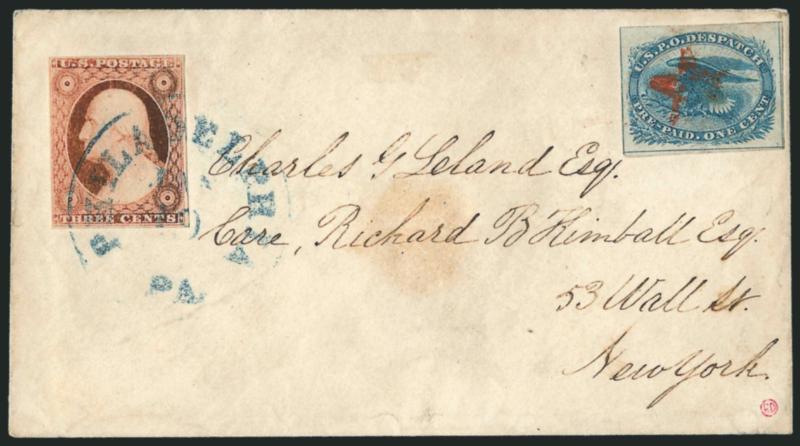 U.S. POSTAGE
THREE CENTS
U.S.P.O. DESPATCH
PRE-PAID. ONE CENT
PHILADELPHIA
PA
Charles G Leland Esq.
Care, Richard B Kimball Esq.
53 Wall St.
New York.